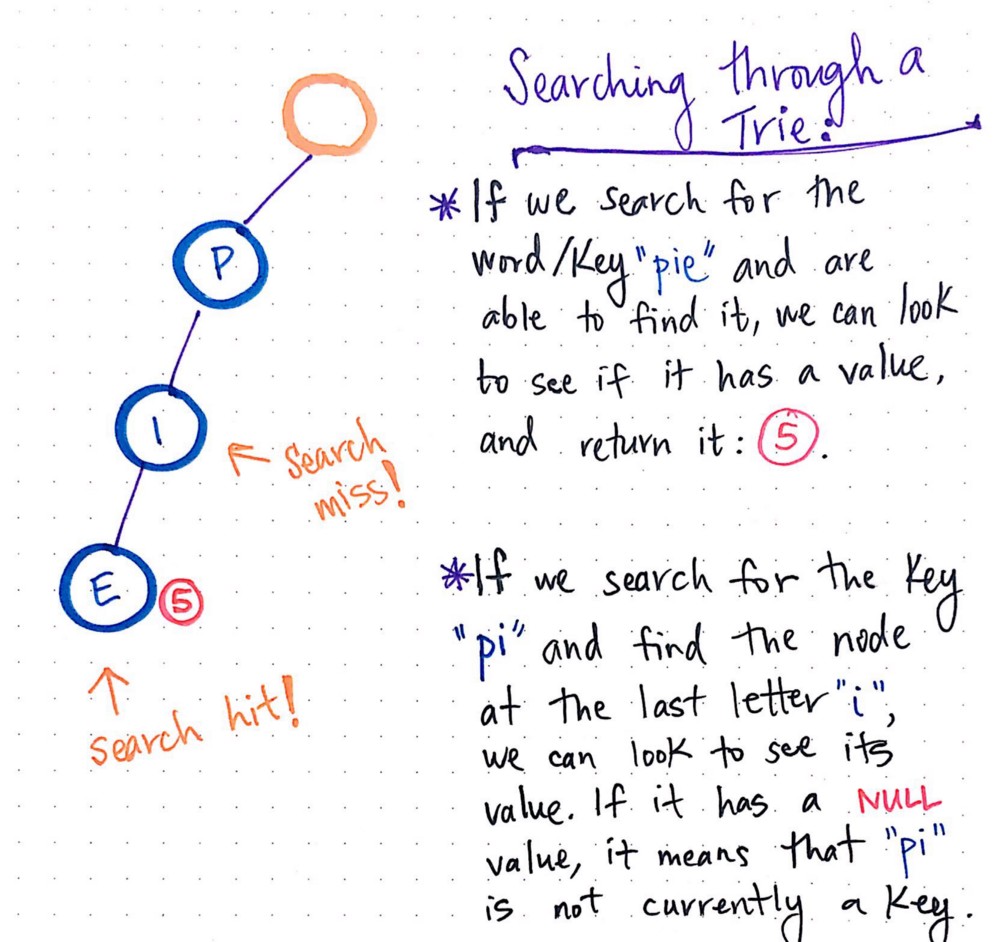 Searching through a
Trie:
*If we search for the
word/key "pie" and are
able to find it, we can look
to see if it has a value,
and return it: 5.
*If we search for the key
"pi" and find the node
at the last letter "i",
we can look to see its
value. If it has a NULL
value, it means that "pi"
is not currently a key.
P
I
← Search
miss!
E 5
↑
search hit!